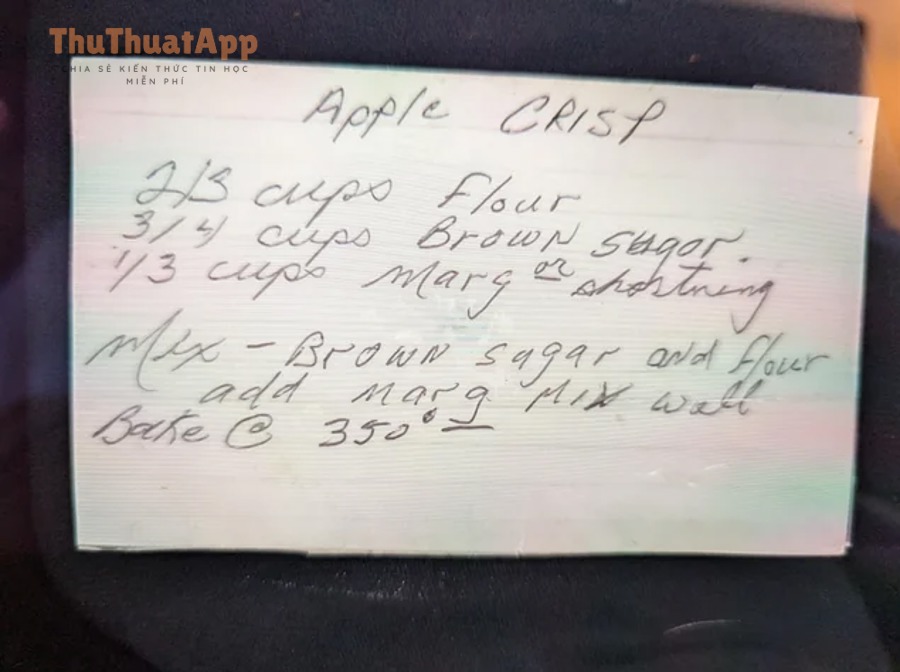 ThuThuatApp
CHIA SẺ KIẾN THỨC TIN HỌC
MIỄN PHÍ
Apple CRISP
2/3 cups Flour
3/4 cups Brown sugar.
1/3 cups Marg or shortning
Mix - Brown sugar and flour
add Marg Mix well
Bake @ 350°